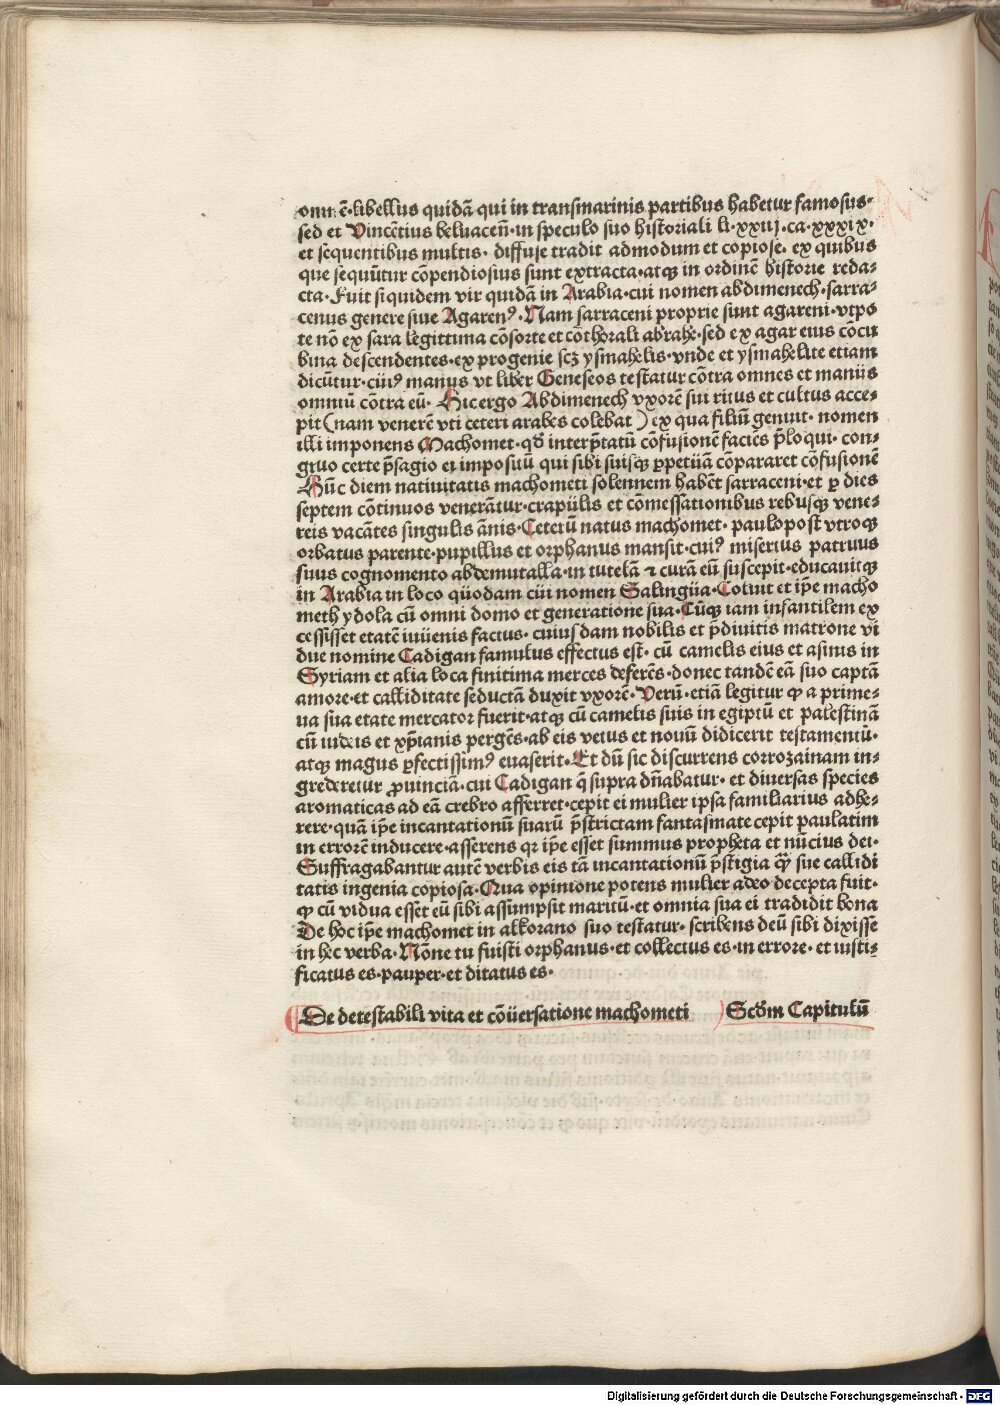 omnē·libellus quidā qui in transmarinis partibus habetur famosus·
sed et Vincētius beluaceñ·in speculo suo historiali li·xxiij·ca·xxxix·
et sequentibus multis· diffuse tradit admodum et copiose· ex quibus
que sequūtur cōpendiosius sunt extracta·atqꝫ in ordinē historie reda⸗
cta·Fuit siquidem vir quidā in Arabia·cui nomen abdimenech·sarra⸗
cenus genere siue Agarenꝰ·Nam sarraceni proprie sunt agareni·vtpo
te nō ex sara legittima cōsorte et cōthorali abrahe·sed ex agar eius cōcu
bina descendentes·ex progenie scꝫ ysmahelis·vnde et ysmahelite etiam
dicūtur·cuiꝰ manus vt liber Geneseos testatur cōtra omnes et manus
omniū cōtra eū· Hic ergo Abdimenech vxorē sui ritus et cultus acce⸗
pit (nam venerē vti ceteri arabes colebat) ex qua filiū genuit· nomen
illi imponens Machomet·qđ interp̄tatū cōfusionē facies p̄loqui· con⸗
gruo certe p̄sagio ei impositū qui sibi suisqꝫ ꝑpetuā cōpararet cōfusionē
Hūc diem natiuitatis machometi solennem habēt sarraceni·et ꝑ dies
septem cōtinuos venerātur·crapulis et cōmessationibus rebusqꝫ vene⸗
reis vacātes singulis ānis·Ceterū natus machomet· paulopost vtroqꝫ
orbatus parente·pupillus et orphanus mansit·cuiꝰ misertus patruus
suus cognomento abdemutalla·in tutelā ⁊ curā eū suscepit·educauitqꝫ
in Arabia in loco quodam cui nomen Salingua·Coluit et ip̄e macho
meth ydola cū omni domo et generatione sua·Cūqꝫ iam infantilem ex
cessisset etatē iuuenis factus· cuiusdam nobilis et p̄diuitis matrone vi
due nomine Cadigan famulus effectus est· cū camelis eius et asinis in
Syriam et alia loca finitima merces deferēs·donec tandē eā suo captā
amore·et calliditate seductā duxit vxorē·Verū·etiā legitur ꝙ a prime⸗
ua sua etate mercator fuerit·atqꝫ cū camelis suis in egiptū et palestinā
cū iudeis et xp̄ianis pergēs·ab eis vetus et nouū didicerit testamentū·
atqꝫ magus ꝑfectissimꝰ euaserit·Et dū sic discurrens corrozainam in⸗
grederetur ꝓuinciā·cui Cadigan q̄ supra dn̄abatur· et diuersas species
aromaticas ad eā crebro afferret·cepit ei mulier ipsa familiarius adhe⸗
rere·quā ip̄e incantationū suarū p̄strictam fantasmate cepit paulatim
in errorē inducere·asserens qꝛ ip̄e esset summus propheta et nūcius dei·
Suffragabantur autē verbis eis tā incantationū p̄stigia qꝫ̄ sue callidi
tatis ingenia copiosa·Qua opinione potens mulier adeo decepta fuit·
ꝙ cū vidua esset eū sibi assumpsit maritū·et omnia sua ei tradidit bona
De hoc ip̄e machomet in alkorano suo testatur· scribens deū sibi dixisse
in hec verba·Nōne tu fuisti orphanus·et collectus es·in errore· et iusti⸗
ficatus es·pauper·et ditatus es·
De detestabili vita et cōuersatione machometi Scđm Capitulū
Digitalisierung gefördert durch die Deutsche Forschungsgemeinschaft - DFG